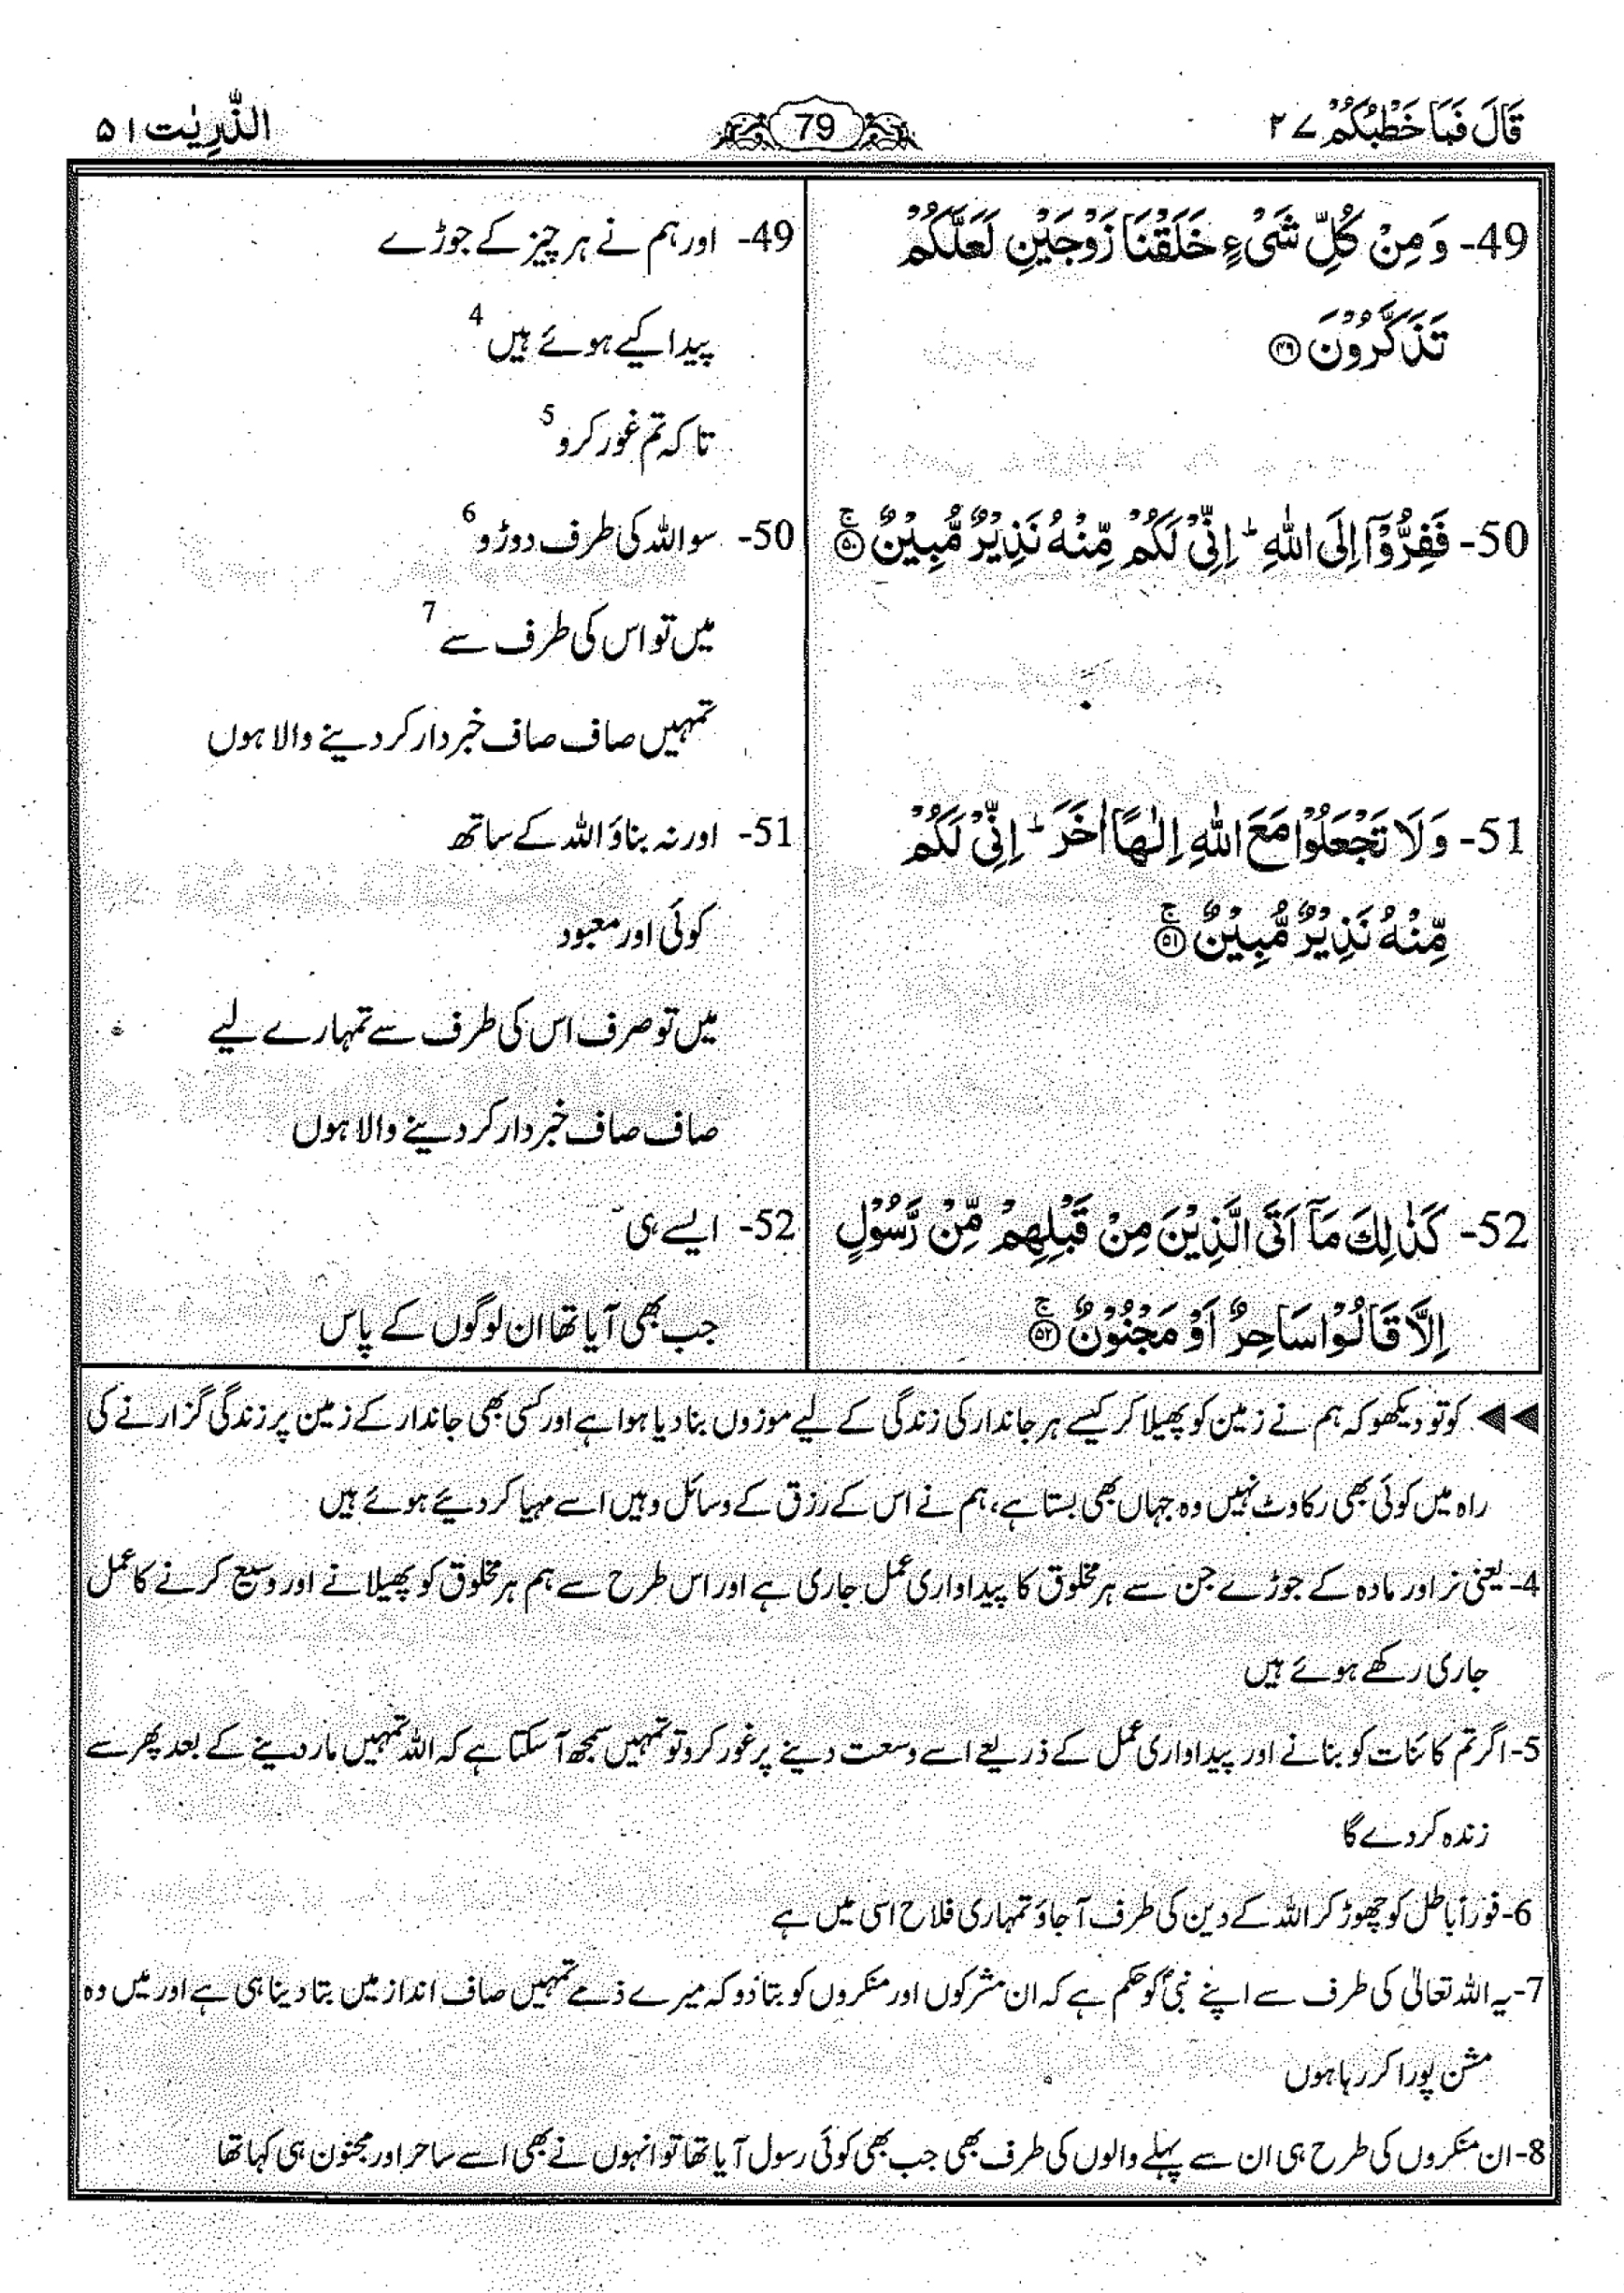 قَالَ فَمَا خَطْبُكُمْ ۲۷
79
الذّٰرِیٰت ۵۱
49- وَ مِنْ كُلِّ شَیْءٍ خَلَقْنَا زَوْجَیْنِ لَعَلَّكُمْ
تَذَكَّرُوْنَ ﴿۴۹﴾
50- فَفِرُّوْۤا اِلَى اللّٰهِ ؕ اِنِّیْ لَكُمْ مِّنْهُ نَذِیْرٌ مُّبِیْنٌ ۚ﴿۵۰﴾
51- وَ لَا تَجْعَلُوْا مَعَ اللّٰهِ اِلٰهًا اٰخَرَ ؕ اِنِّیْ لَكُمْ
مِّنْهُ نَذِیْرٌ مُّبِیْنٌ ۚ﴿۵۱﴾
52- كَذٰلِكَ مَاۤ اَتَى الَّذِیْنَ مِنْ قَبْلِهِمْ مِّنْ رَّسُوْلٍ
اِلَّا قَالُوْا سَاحِرٌ اَوْ مَجْنُوْنٌ ۚ﴿۵۲﴾
49- اور ہم نے ہر چیز کے جوڑے
پیدا کیے ہوئے ہیں 4
تا کہ تم غور کرو 5
50- سو اللہ کی طرف دوڑو 6
میں تو اس کی طرف سے 7
تمہیں صاف صاف خبردار کر دینے والا ہوں
51- اور نہ بناؤ اللہ کے ساتھ
کوئی اور معبود
میں تو صرف اس کی طرف سے تمہارے لیے
صاف صاف خبردار کر دینے والا ہوں
52- ایسے ہی
جب بھی آیا تھا ان لوگوں کے پاس
◄◄ کو تو دیکھو کہ ہم نے زمین کو پھیلا کر کیسے ہر جاندار کی زندگی کے لیے موزوں بنا دیا ہوا ہے اور کسی بھی جاندار کے زمین پر زندگی گزارنے کی
راہ میں کوئی بھی رکاوٹ نہیں وہ جہاں بھی بستا ہے، ہم نے اس کے رزق کے وسائل وہیں اسے مہیا کر دیئے ہوئے ہیں
4- یعنی نر اور مادہ کے جوڑے جن سے ہر مخلوق کا پیداواری عمل جاری ہے اور اس طرح سے ہم ہر مخلوق کو پھیلانے اور وسیع کرنے کا عمل
جاری رکھے ہوئے ہیں
5- اگر تم کائنات کو بنانے اور پیداواری عمل کے ذریعے اسے وسعت دینے پر غور کرو تو تمہیں سمجھ آ سکتا ہے کہ اللہ تمہیں مار دینے کے بعد پھر سے
زندہ کر دے گا
6- فوراً باطل کو چھوڑ کر اللہ کے دین کی طرف آ جاؤ تمہاری فلاح اسی میں ہے
7- یہ اللہ تعالیٰ کی طرف سے اپنے نبیؐ کو حکم ہے کہ ان مشرکوں اور منکروں کو بتا دو کہ میرے ذمے تمہیں صاف انداز میں بتا دینا ہی ہے اور میں وہ
مشن پورا کر رہا ہوں
8- ان منکروں کی طرح ہی ان سے پہلے والوں کی طرف بھی جب بھی کوئی رسول آیا تھا تو انہوں نے بھی اسے ساحر اور مجنون ہی کہا تھا